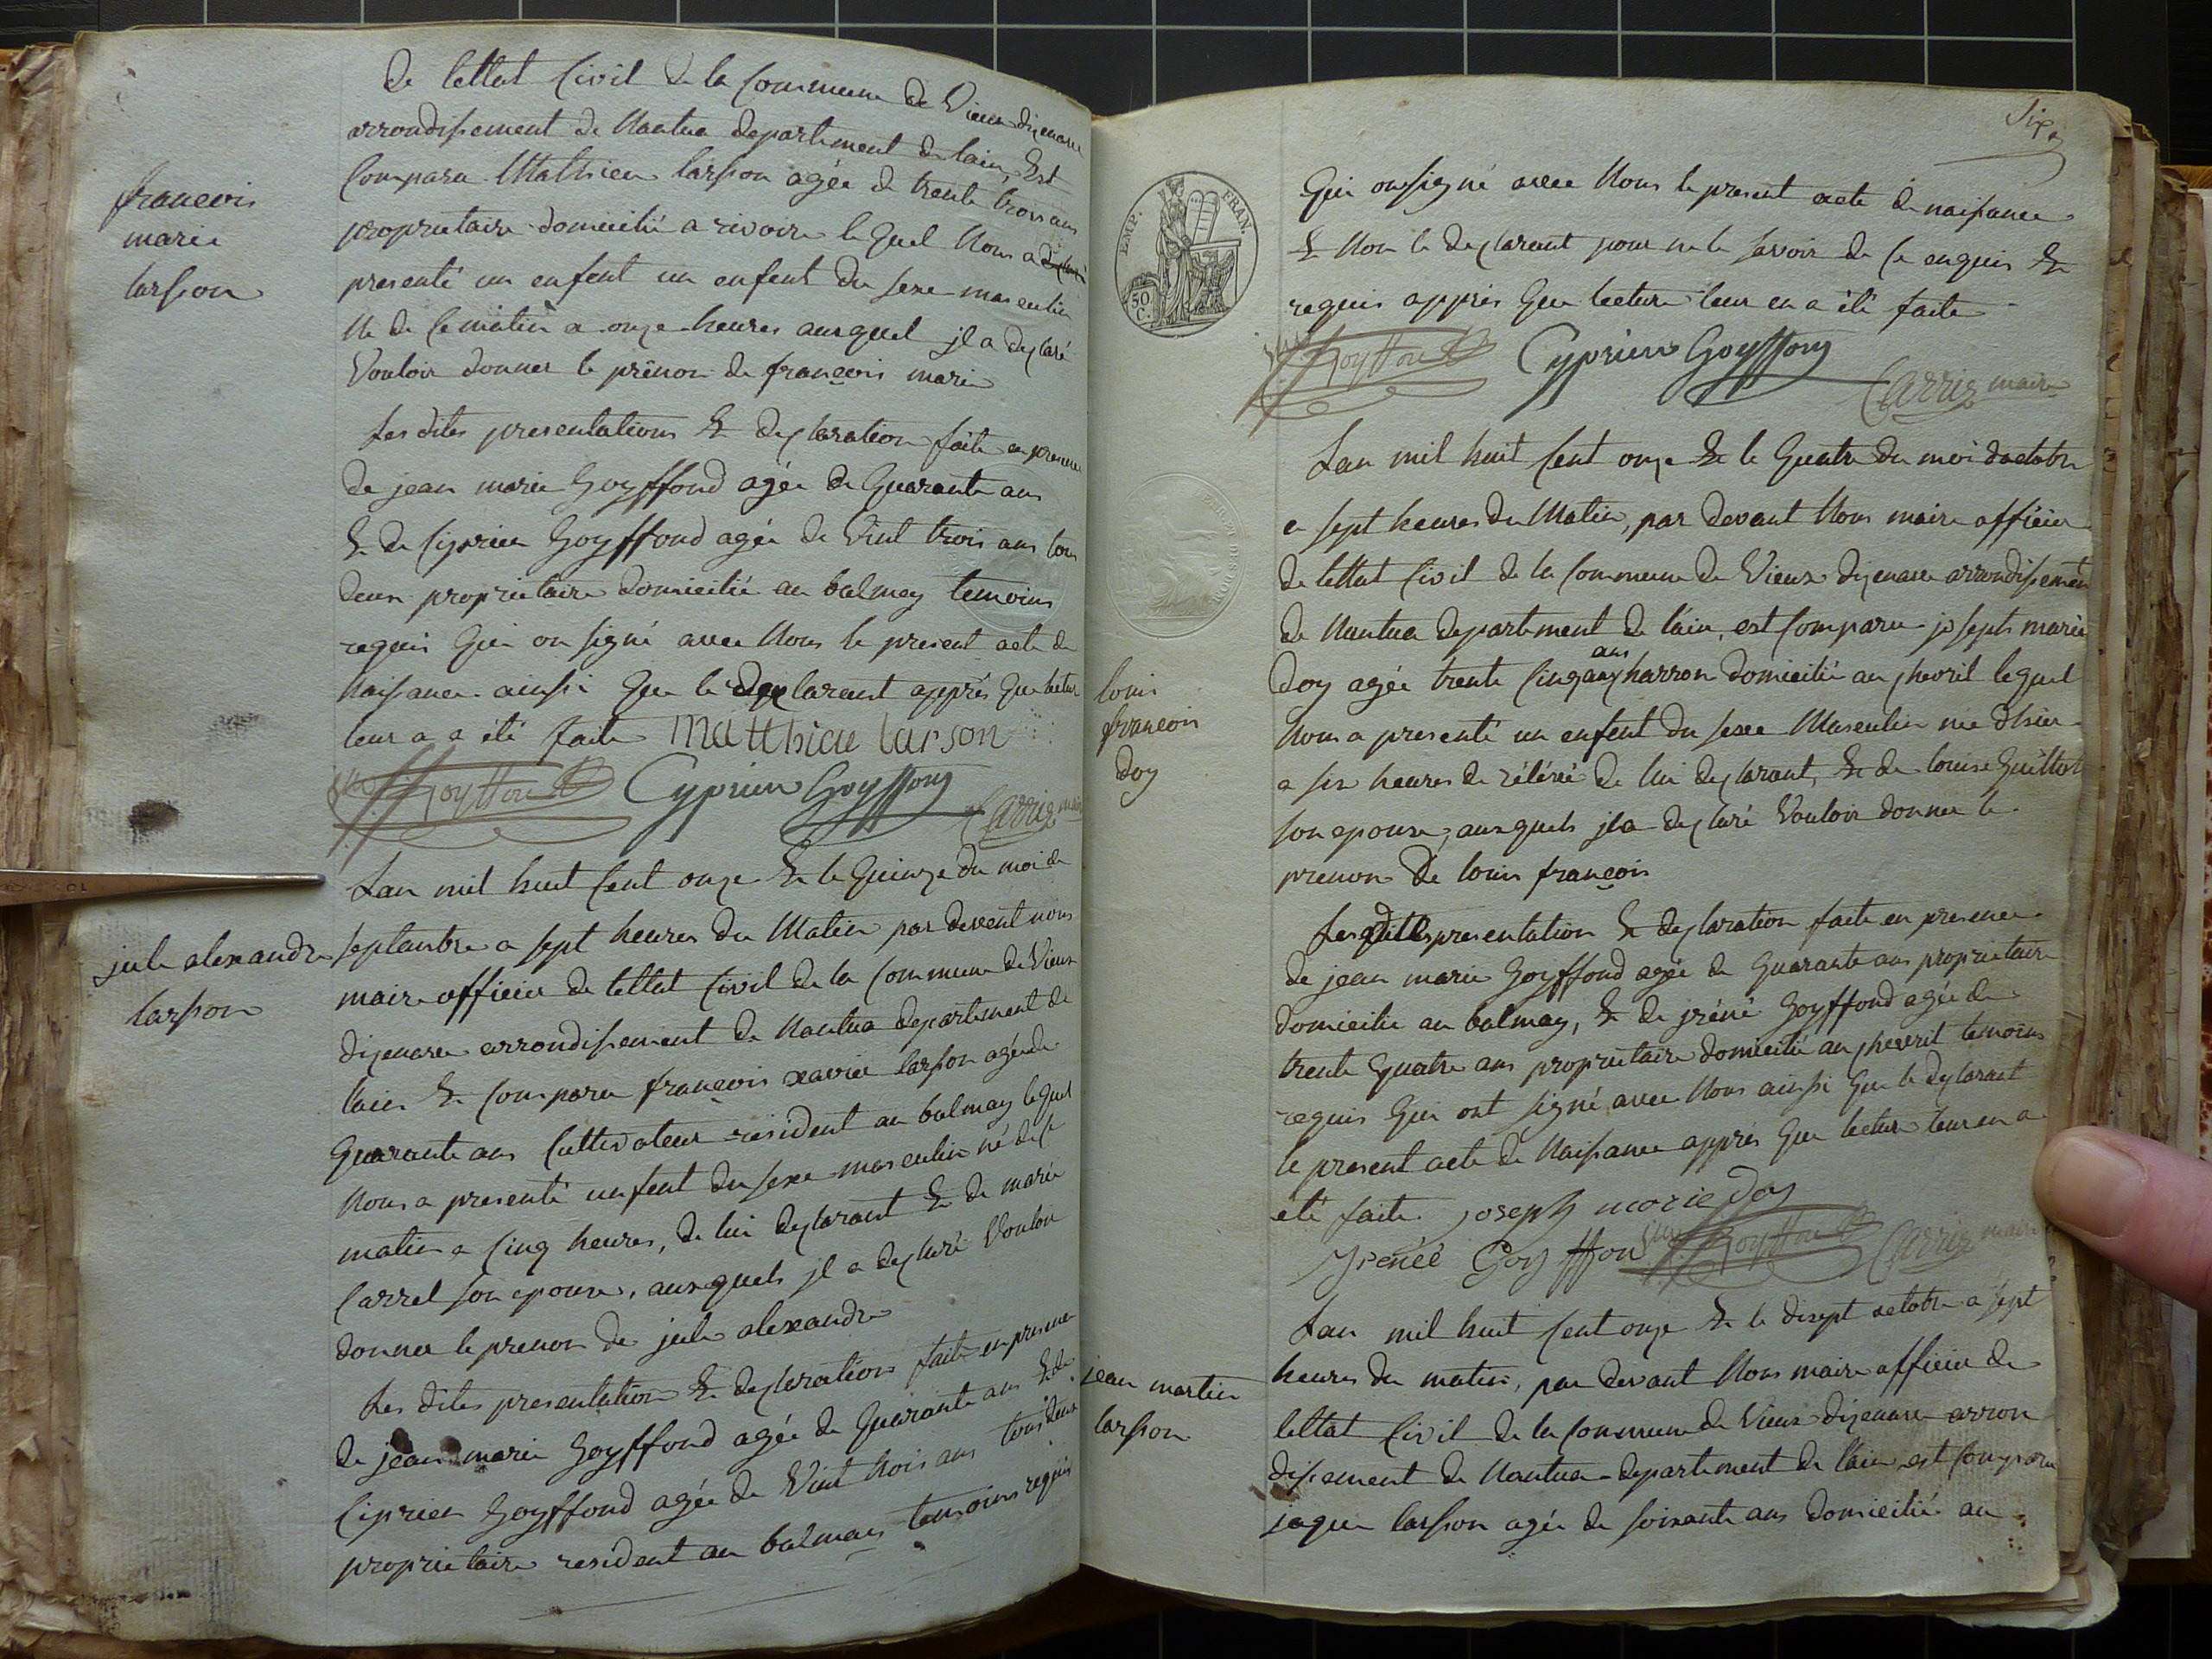 de lettat Civil de la Commune de Vieux dizenave
arrondissement de Nantua departement de lain, Est
Comparu Mathieu larson agée de trente trois ans
françois
marie
larson
proprietaire domicilié a rivoire le quel Nous a
presenté un enfent un enfent du sexe masculin
Né de Ce matin a onze heures au quel jl a declaré
Vouloir donner le prénon de françois marie
Les dites presentations & declaration faite en presence
de jean marie Goyffond agée de Quarante ans
& de Ciprien Goyffond agée de Vint trois ans tous
deux proprietaire domicilié au balmay temoins
requis Qui on signé avec Nous le present acte de
Naissance ainsi Que le declarent apprés Que lectur
leur a a été faite Matthieu larson
Goyffon Cyprien Goyffong Carrier maire
Lan mil huit Cent onze & le Quinze du moi de
jule alexandre
larson
septembre a sept heures du Matin par devent nous
maire officier de lettat Civil de la Commune de Vieux
dizenave arrondissement de Nantua departement de
lain & Comparu françois xavier larson agée de
Quarante ans Cultivateur resident au balmay lequel
Nous a presenté unfent du sexe masculin né de Ce
matin a Cinq heures, de lui declarant & de marie
Carrel son epouse, aux quels jl a declaré Vouloir
donner le prenon de jule alexandre
Les dites presentation & declaration faite en presence
de jean marie Goyffond agée de Quarante ans & de
Ciprien Goyffond agée de Vint trois ans tous deux
proprietaire resident au balmay temoins requis
Six
EMP. FRAN.
50
C.
Qui on signé avec Nous le present acte de naissance
& Non le declarent pour ne le savoir de Ce enquis &
requis apprés Que lecture leur en a été faite
Goyffon Cyprien Goyffong Carrier maire
Lan mil huit Cent onze & le Quatre du moi doctobre
a sept heures du Matin, par devant Nous maire officier
de lettat Civil de la Commune de Vieux dizenave arrondissement
de Nantua departement de lain, est Comparu joseph marie
louis
françois
doy
doy agée trente Cinq ans charron domicilié au chevril lequel
Nous a presenté un enfent du sexe Masculin née dhier
a six heures de de lui declarant, & de louise Guillot
son epouse, aux quels jla declaré Vouloir donner le
prenon De louis françois
Les dittes presentation & declaration faite en presence
de jean marie Goyffond agée de Quarante ans proprietaire
domicilie au balmay, & de jréné Goyffond agée de
trente Quatre ans proprietaire domicilié au chevril temoins
requis Qui ont signé avec Nous ainsi Que le declarant
le present acte de Naissance apprés Que lecture leur en a
été faite. joseph marie doy
Jrenéé Goyffon Goyffon Carrier maire
Lan mil huit Cent onze & le disept octobre a sept
jean martin
larson
heures du matin, par devant Nous maire officier de
lettat Civil de la Commune de Vieux dizenave arron
dissement de Nantua departement de lain est Comparu
jaque larson agée de soixante ans domicilié au